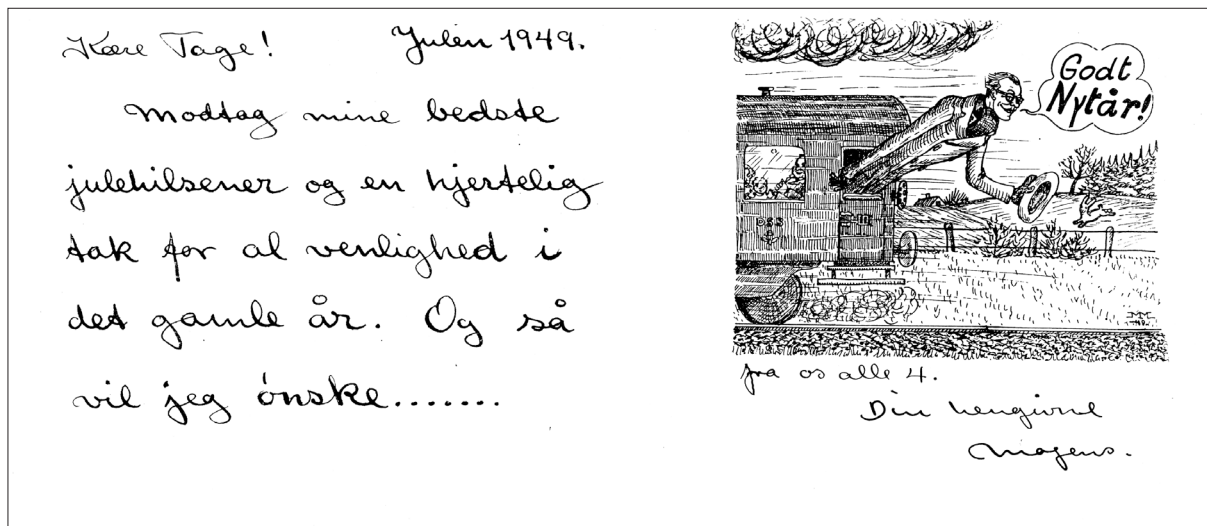 Kære Tage!
Julen 1949.
Modtag mine bedste
julehilsener og en hjertelig
tak for al venlighed i
det gamle år. Og så
vil jeg ønske.......
Godt
Nytår!
DSB
fra os alle 4.
Din hengivne
Mogens.